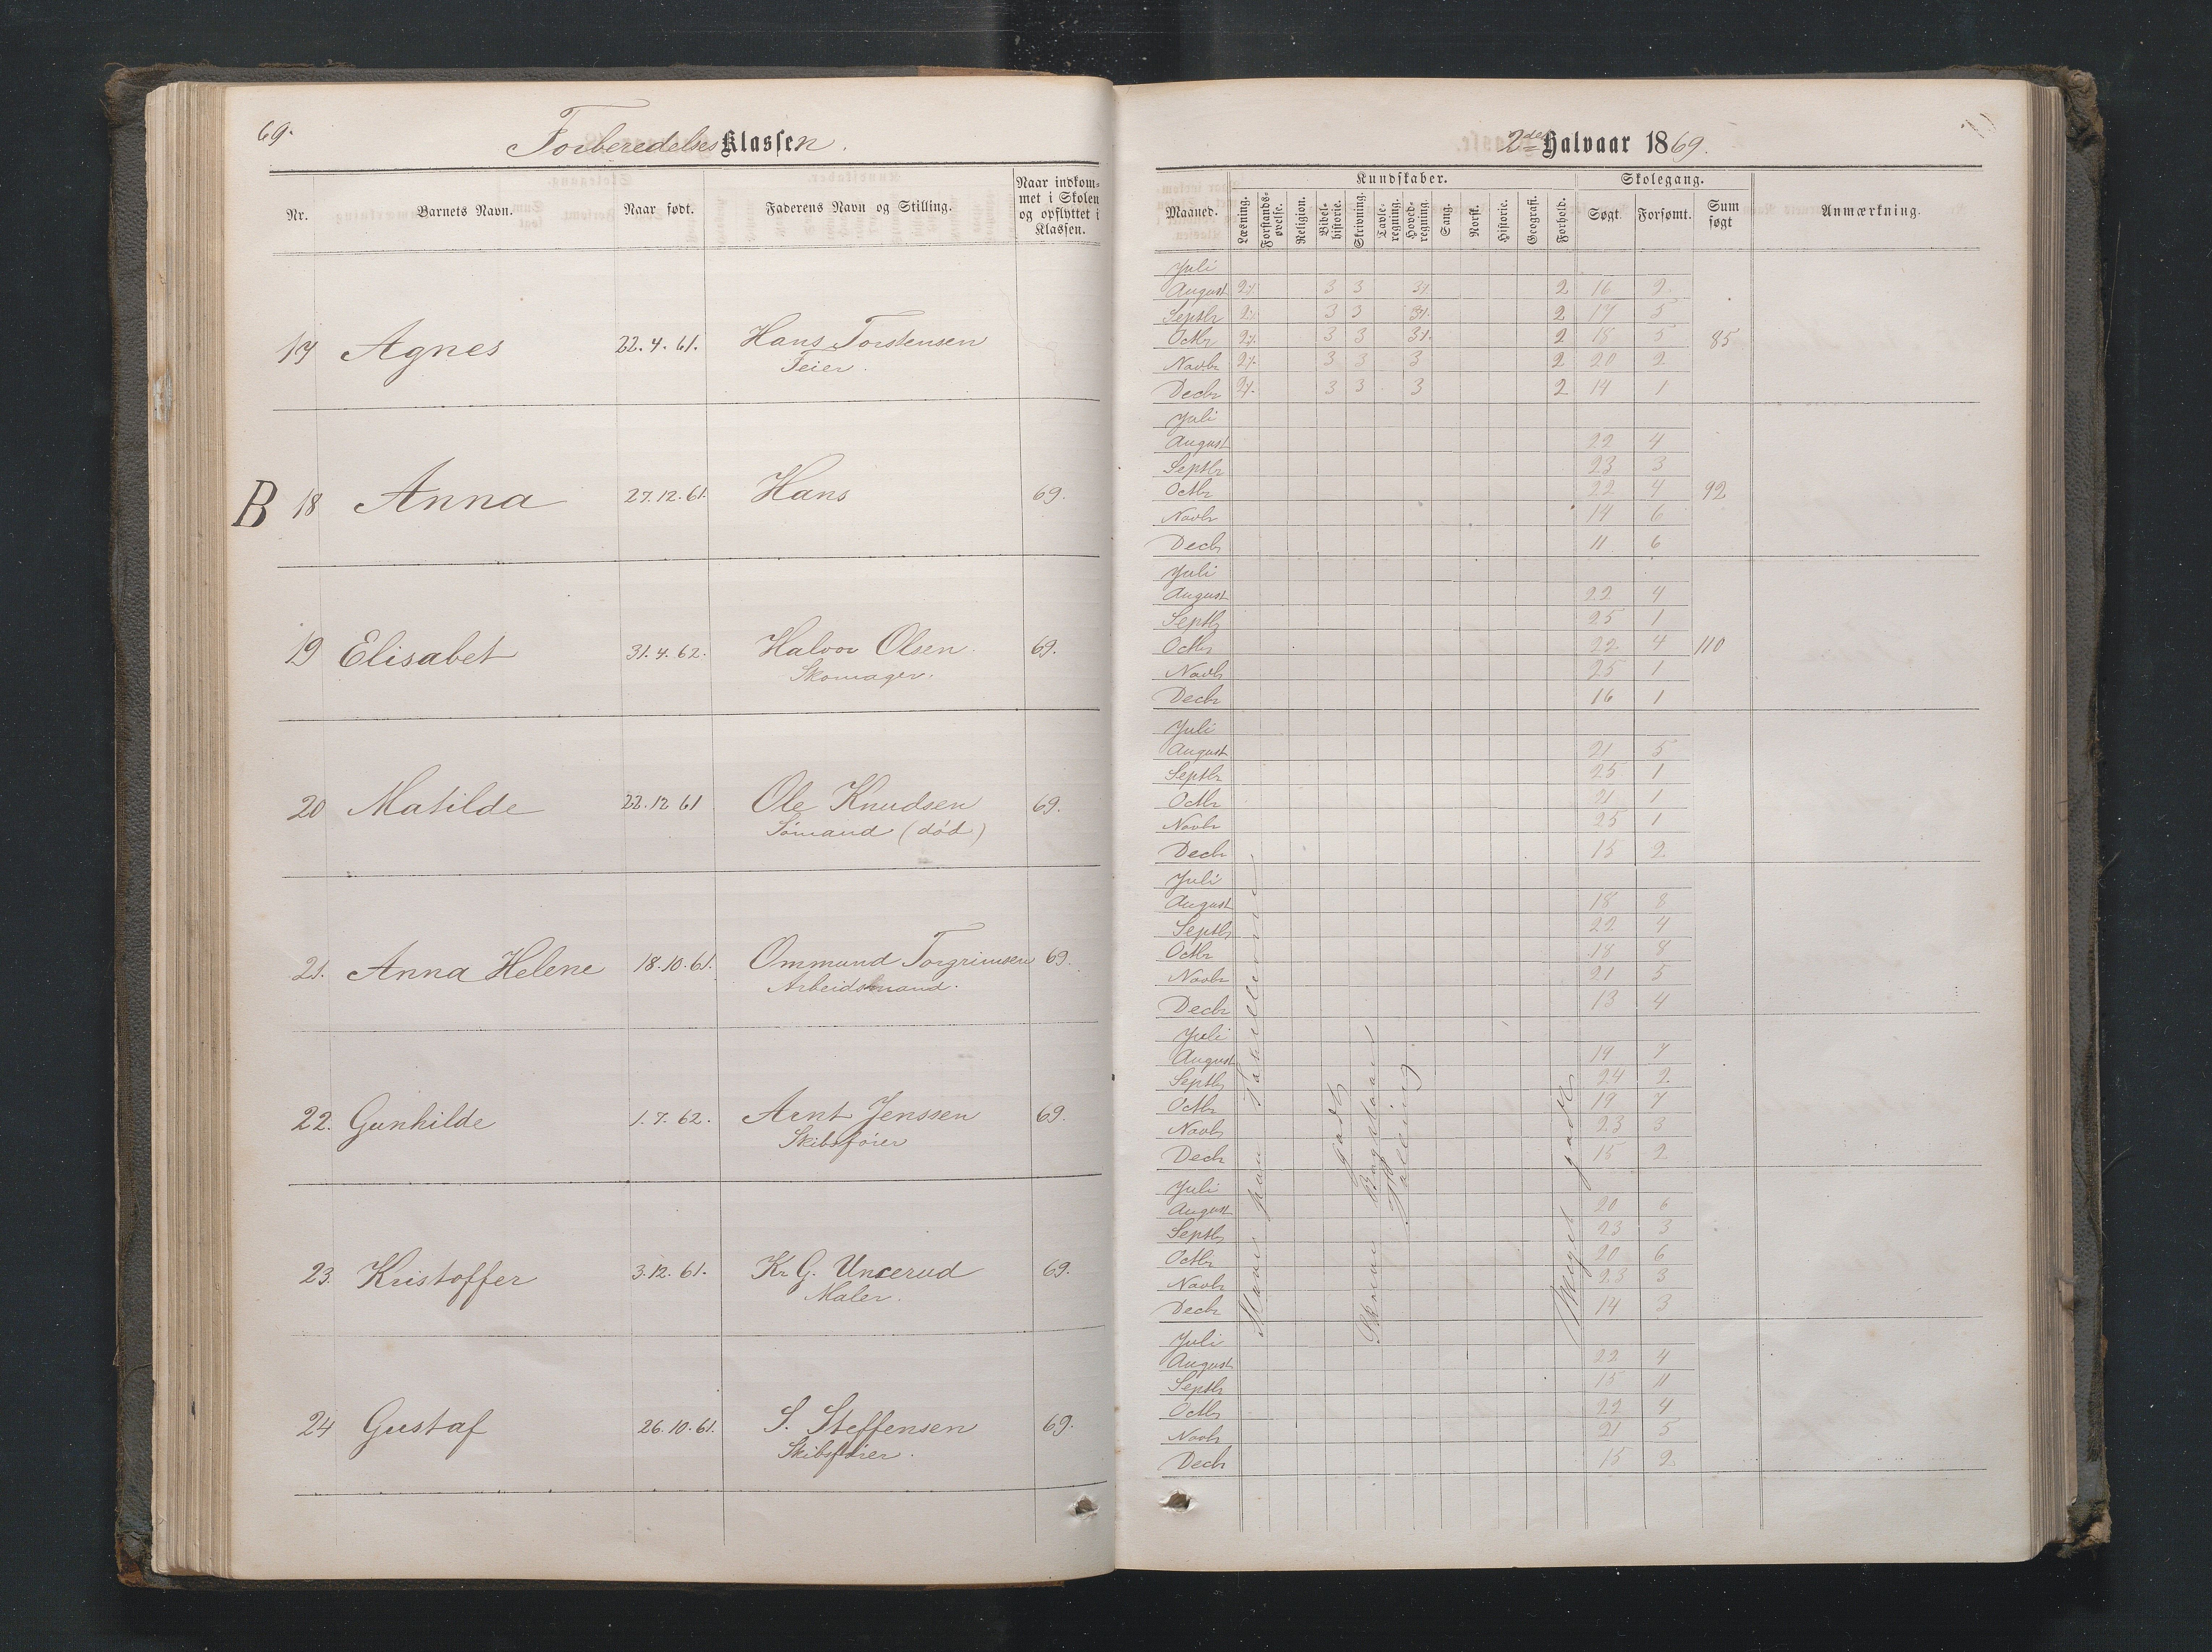 69.
Forberedelses Klassen.
Nr.
Barnets Navn.
Naar født.
Faderens Navn og Stilling.
Naar indkom-
met i Skolen
og opflyttet i
Klassen.
17 Agnes 22.4.61. Hans Torstensen
Feier.
B 18 Anna 27.12.61. Hans 69.
19 Elisabet 31.4.62. Halvor Olsen 69.
Skomager.
20 Matilde 22.12 61 Ole Knudsen 69.
Sømand (død)
21. Anna Helene 18.10.61. Ommund Torgrimsen 69.
Arbeidsmand.
22. Gunhilde 1.7.62. Arnt Jenssen 69.
Skibsfører
23. Kristoffer 3.12.61. Kr G. Uncerud 69.
Maler.
24 Gustaf 26.10.61. S. Steffensen 69.
Skibsfører.
2det Halvaar 1869.
Kundskaber.
Skolegang.
Maaned.
Læsning.
Forstands-
øvelse.
Religion.
Bibel-
historie.
Skrivning.
Tavle-
regning.
Hoved-
regning.
Sang.
Norsk.
Historie.
Geografi.
Forhold.
Søgt.
Forsømt.
Sum
søgt
Anmærkning.
Juli
August 3 3 2 16 2
Septbr 3 3 2 17 5
Octbr 3 3 2 18 5 85
Novbr 3 3 3 2 20 2
Decbr 3 3 3 2 14 1
Juli
August 22 4
Septbr 23 3
Octbr 22 4 92
Novbr 14 6
Decbr 11 6
Juli
August 22 4
Septbr 25 1
Octbr 22 4 110
Novbr 25 1
Decbr 16 1
Juli
August 21 5
Septbr 25 1
Octbr 21 1
Novbr 25 1
Decbr 15 2
Juli
August 18 8
Septbr 22 4
Octbr 18 8
Novbr 21 5
Decbr 13 4
Juli
August 19 7
Septbr 24 2
Octbr 19 7
Novbr 23 3
Decbr 15 2
Juli
August 20 6
Septbr 23 3
Octbr 20 6
Novbr 23 3
Decbr 14 3
Juli
August 22 4
Septbr 15 11
Octbr 22 4
Novbr 21 5
Decbr 15 2
godt
Bogstaver
Tælling.
Meget godt